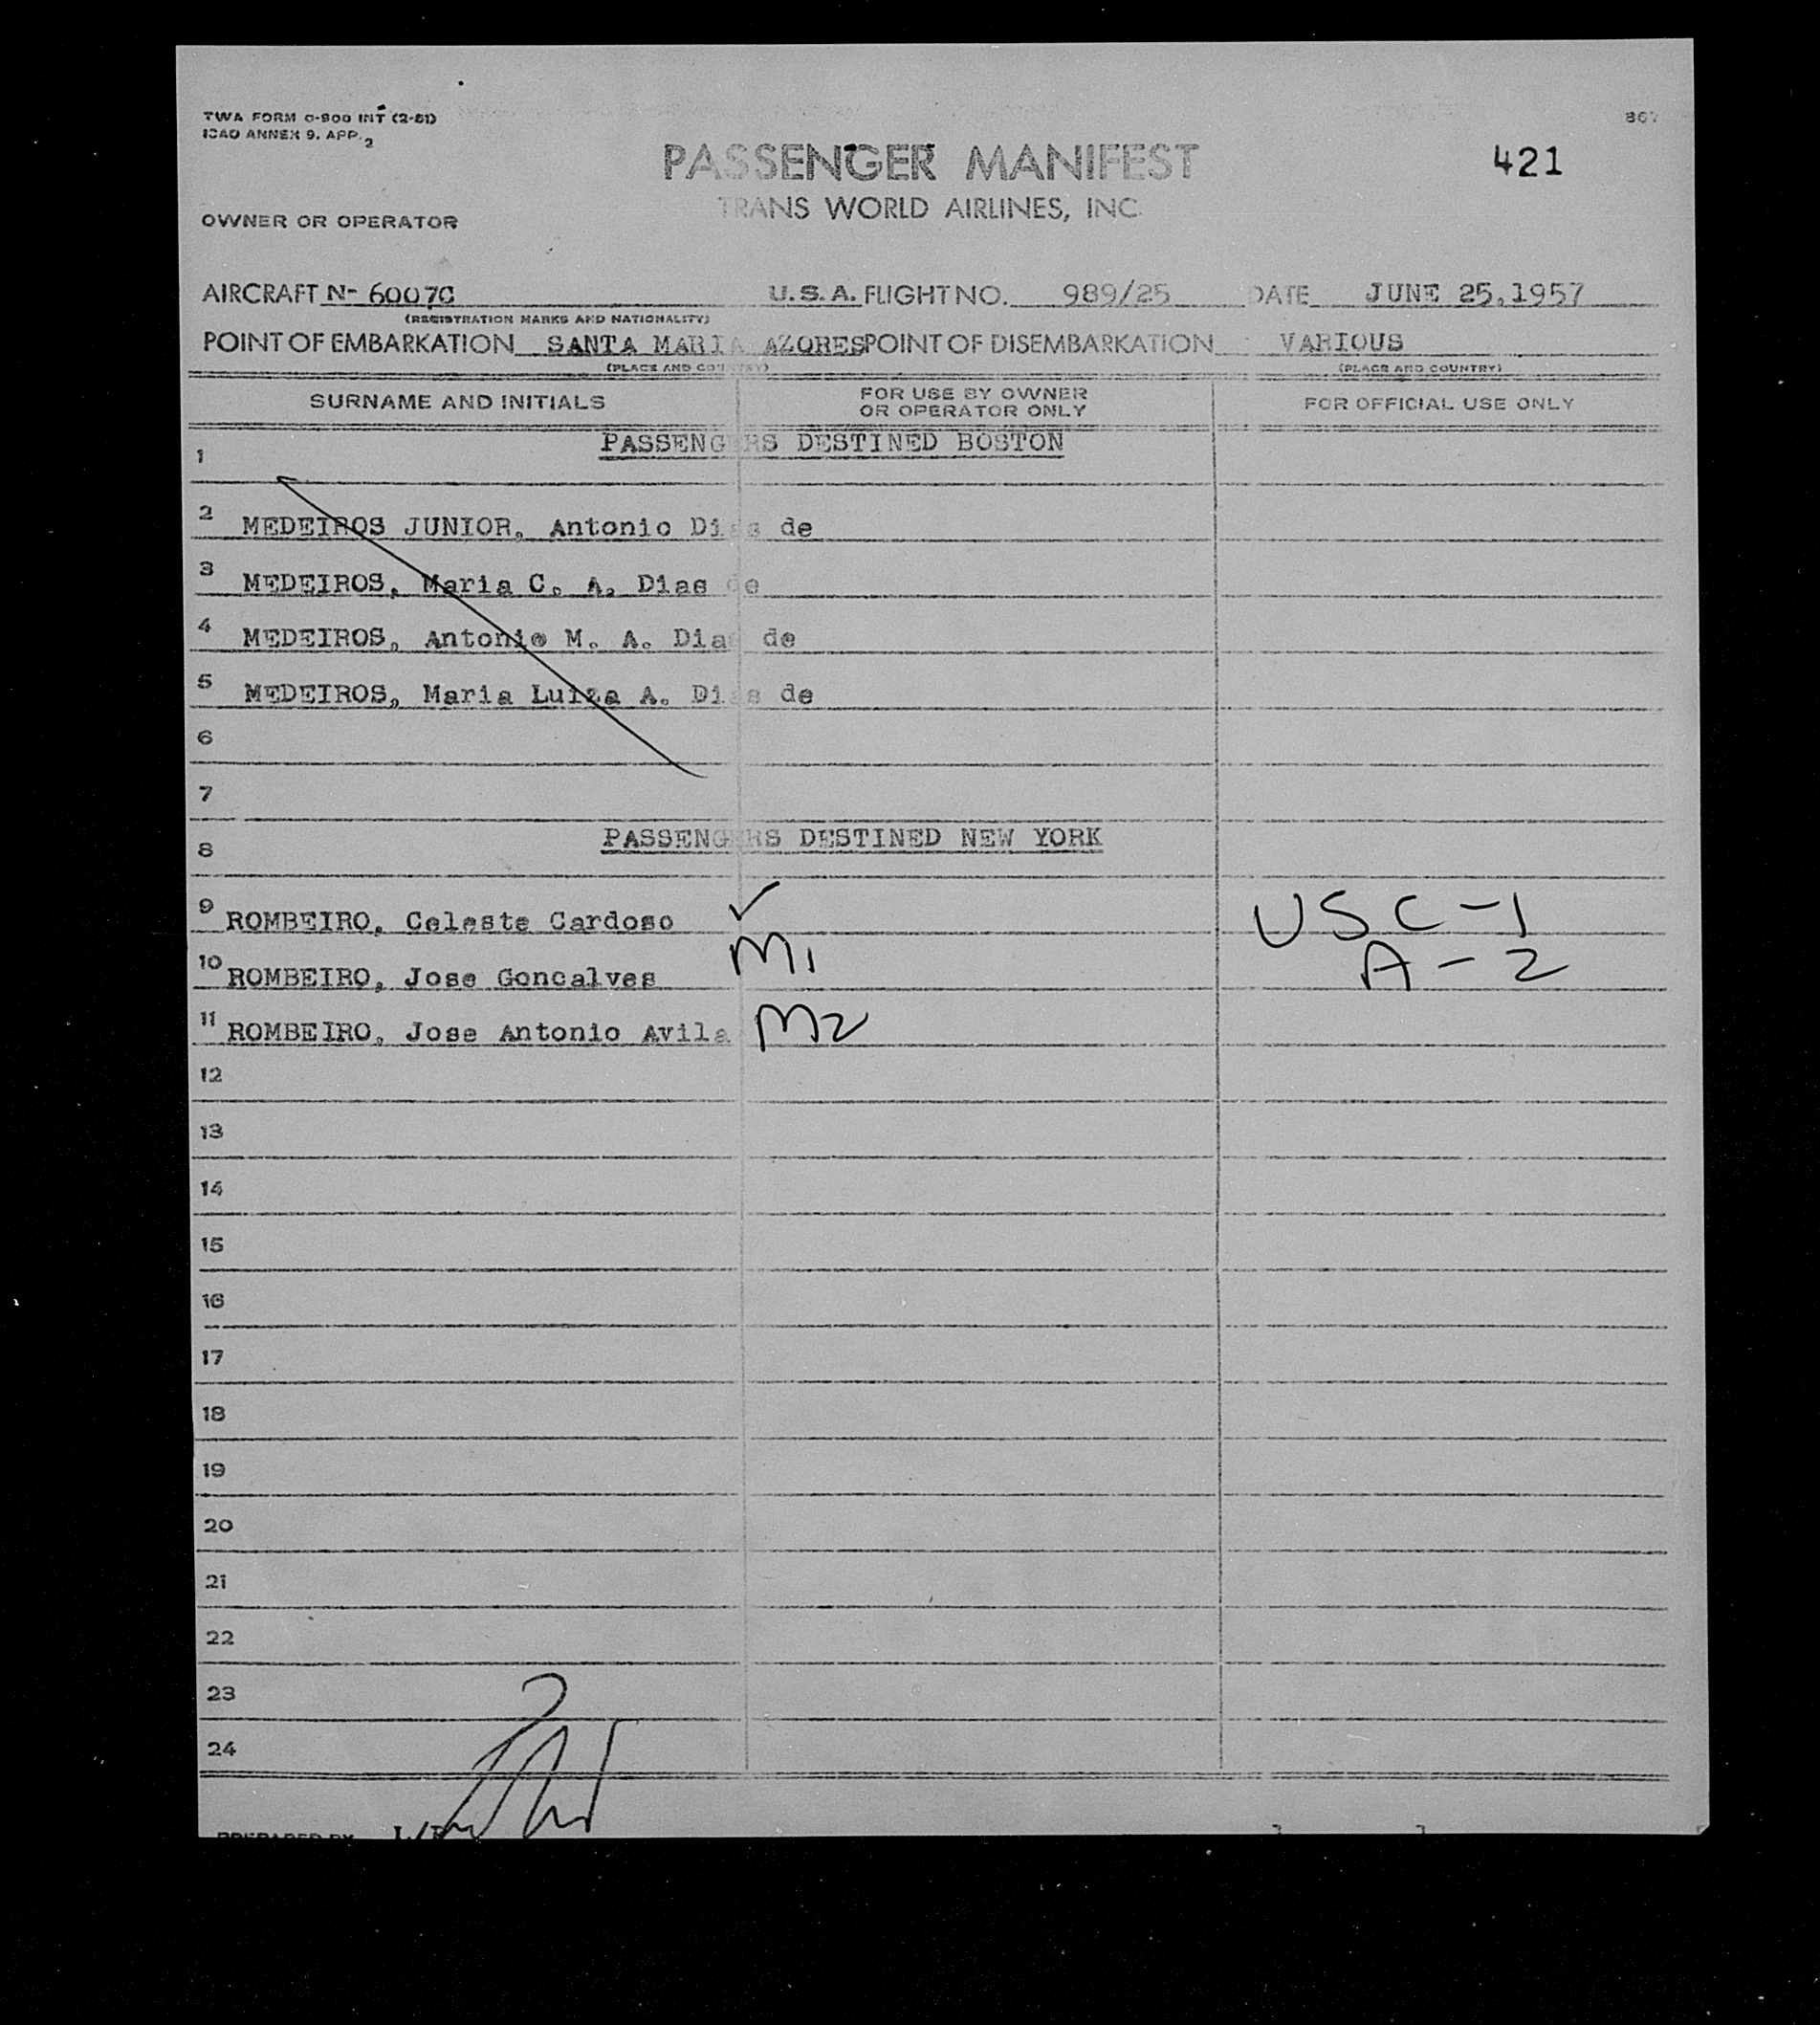 TWA FORM O-800 INT (2-51)
ICAO ANNEX 9. APP. 2
PASSENGER MANIFEST
421
TRANS WORLD AIRLINES, INC.
OWNER OR OPERATOR
AIRCRAFT N- 6007C U.S.A. FLIGHT NO. 989/25 DATE JUNE 25.1957
(REGISTRATION MARKS AND NATIONALITY)
POINT OF EMBARKATION SANTA MARIA AZORES POINT OF DISEMBARKATION VARIOUS
(PLACE AND COUNTRY) (PLACE AND COUNTRY)
SURNAME AND INITIALS
FOR USE BY OWNER
OR OPERATOR ONLY
FOR OFFICIAL USE ONLY
1 PASSENGERS DESTINED BOSTON
2 MEDEIROS JUNIOR, Antonio Dias de
3 MEDEIROS, Maria C. A. Dias de
4 MEDEIROS, Antonio M. A. Dias de
5 MEDEIROS, Maria Luiza A. Dias de
6
7
8 PASSENGERS DESTINED NEW YORK
9 ROMBEIRO, Celeste Cardoso ✓ USC-1
10 ROMBEIRO, Jose Goncalves M1 A-2
11 ROMBEIRO, Jose Antonio Avila M2
12
13
14
15
16
17
18
19
20
21
22
23
24
PREPARED BY